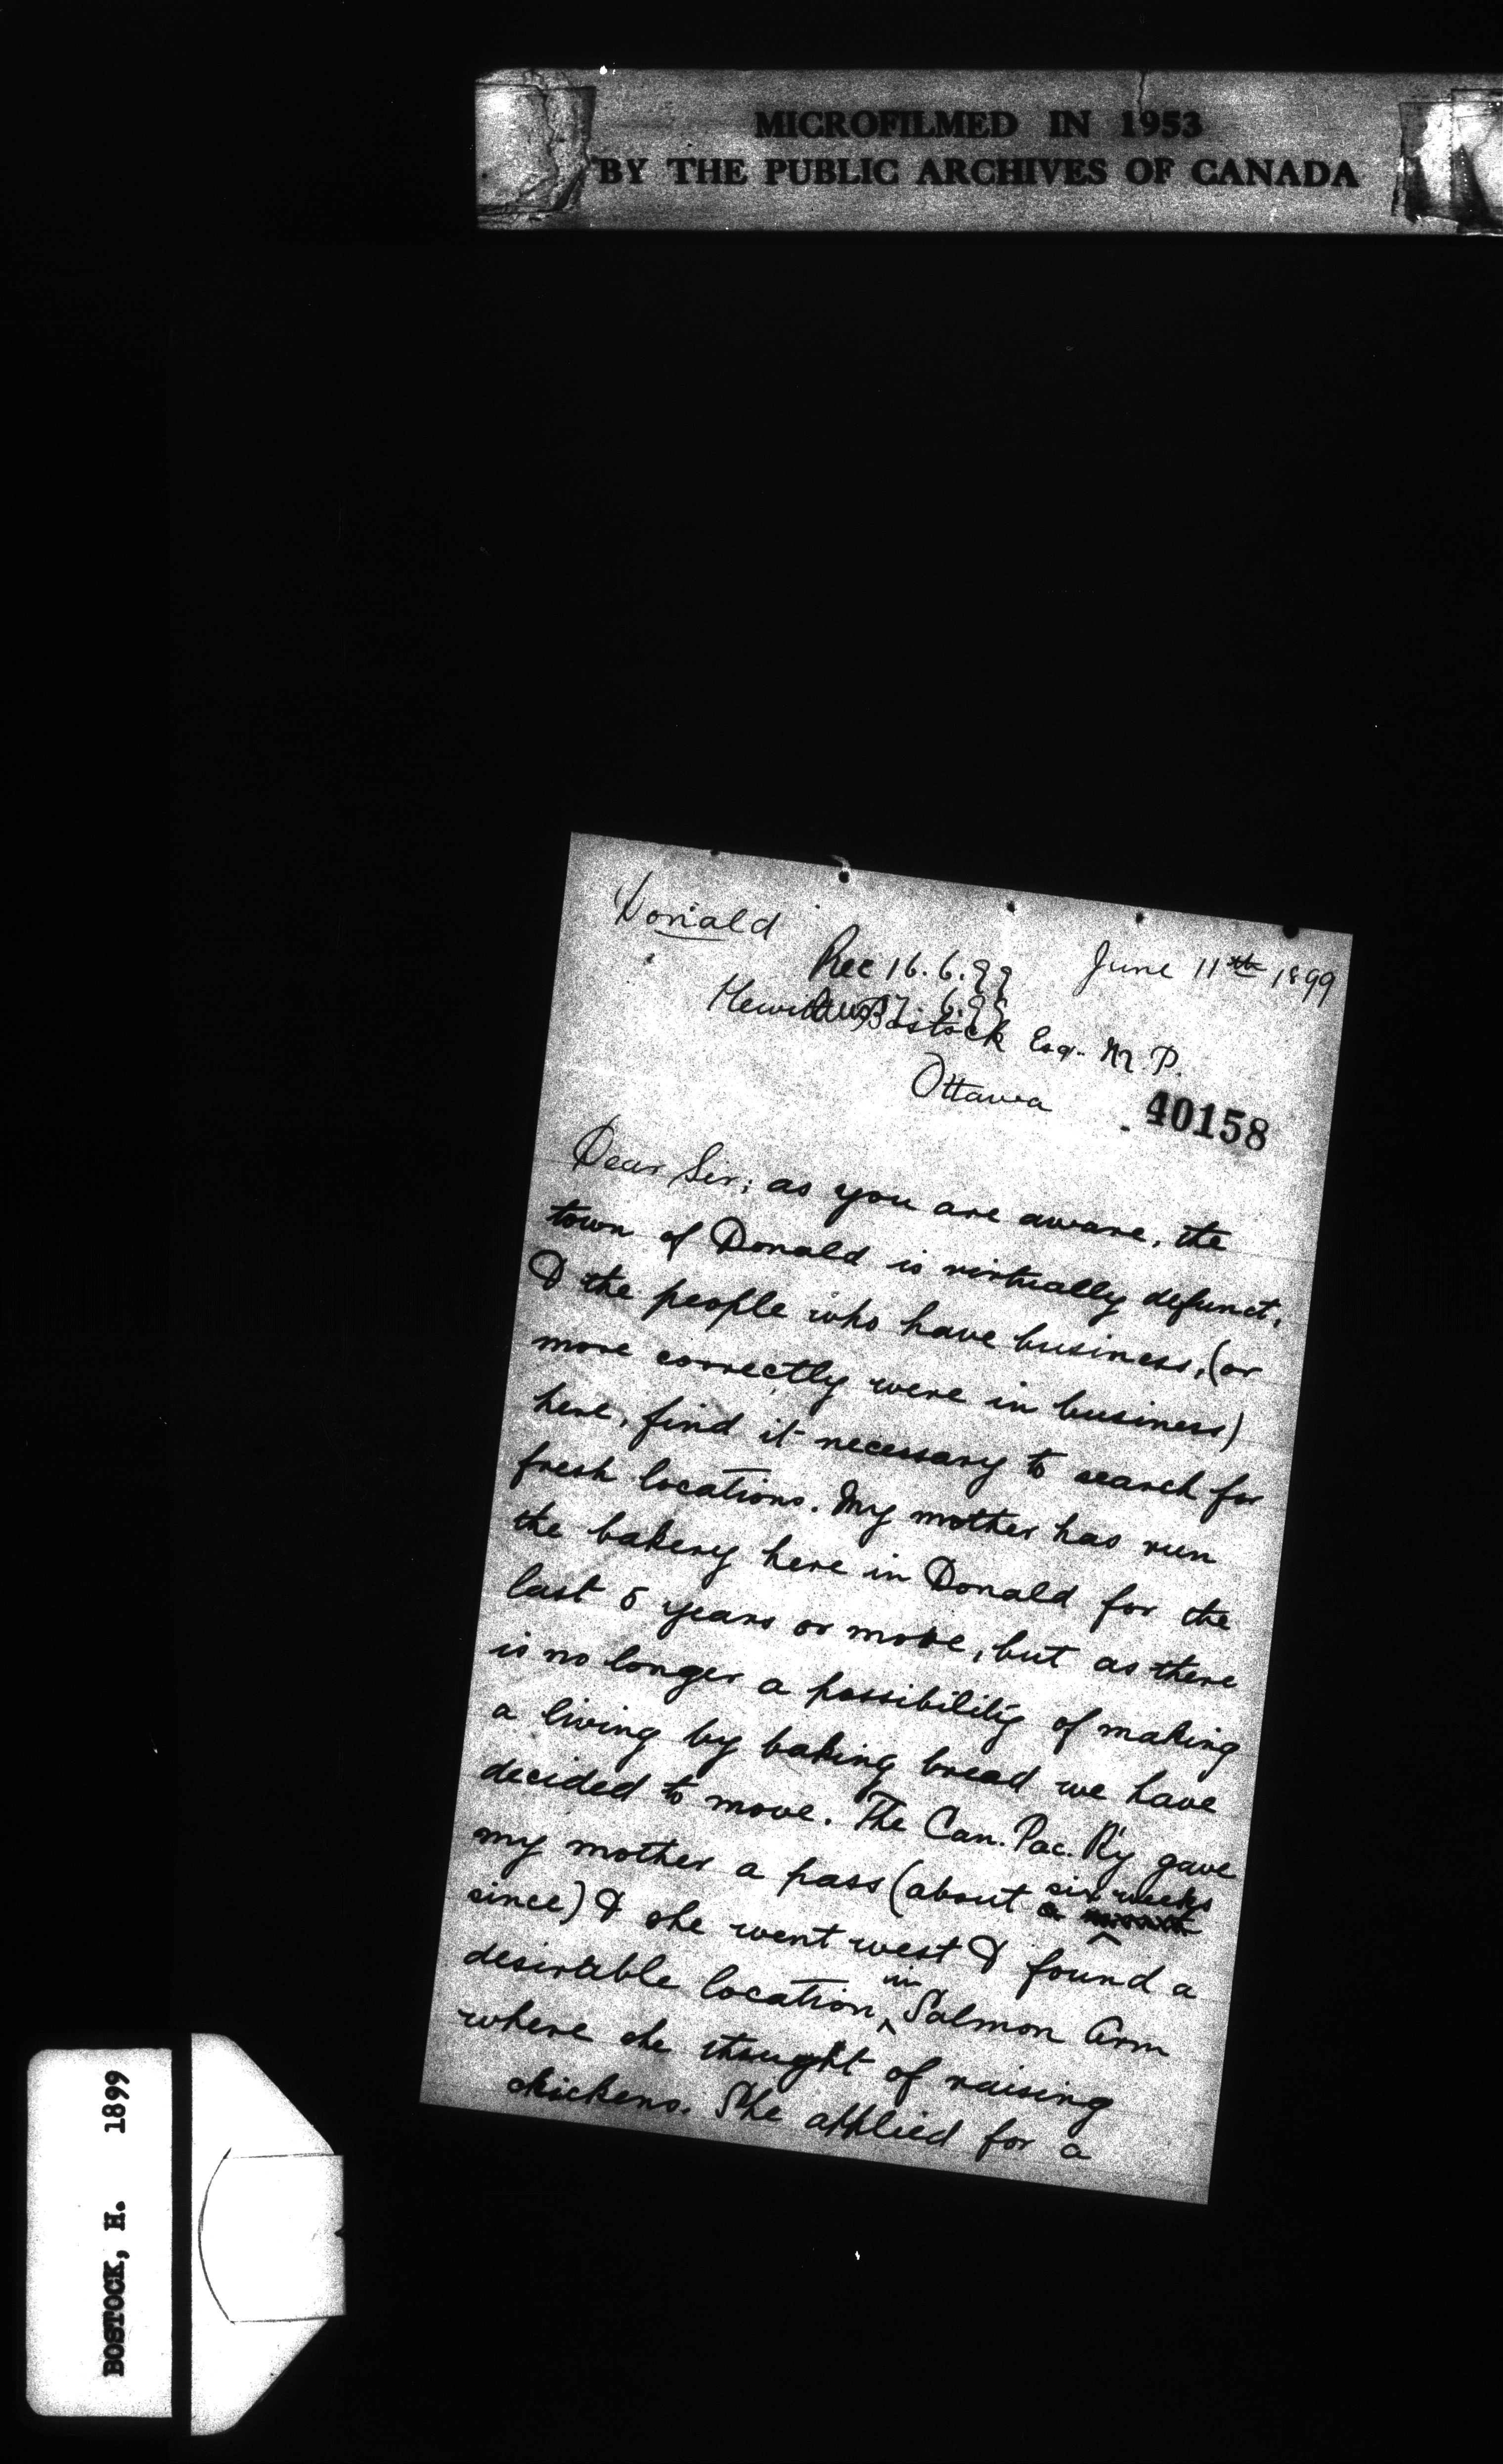 MICROFILMED IN 1953
BY THE PUBLIC ARCHIVES OF CANADA
Donald
Rec 16.6.99 June 11th 1899
Hewitt Bostock Esq. M.P.
Ottawa
40158
Dear Sir; as you are aware, the
town of Donald is virtually defunct,
& the people who have business, (or
more correctly were in business)
here, find it necessary to search for
fresh locations. My mother has run
the bakery here in Donald for the
last 5 years or more, but as there
is no longer a possibility of making
a living by baking bread we have
decided to move. The Can. Pac. R'y gave
my mother a pass (about a six weeks
since) & she went west & found a
desirable location, in Salmon Arm
where she thought of raising
chickens. She applied for a
BOSTOCK, H. 1899